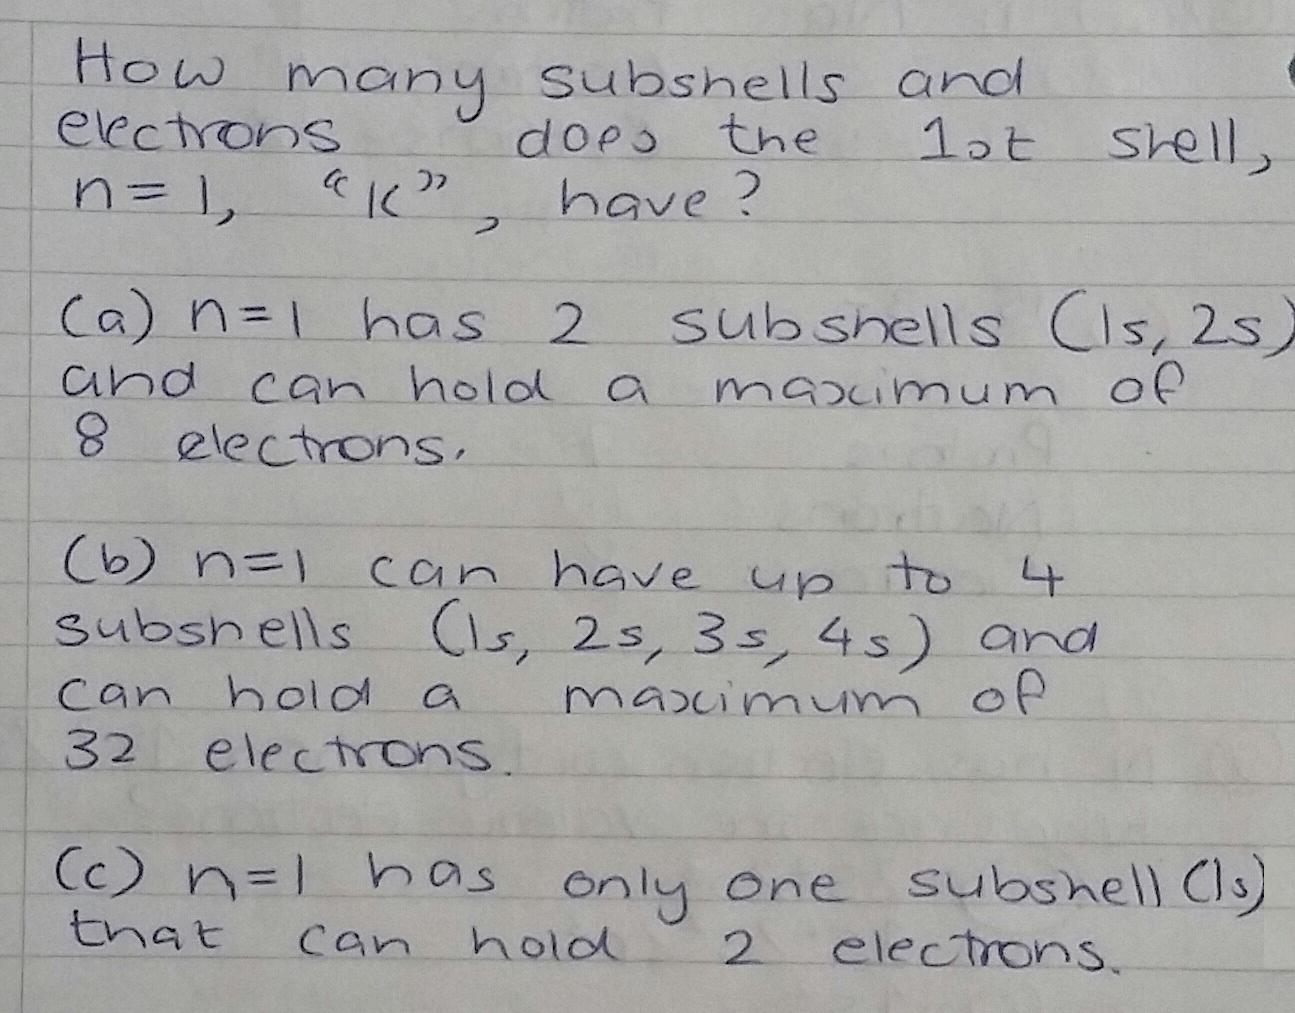 How many subshells and
electrons does the 1st shell,
n=1, "K", have?
(a) n=1 has 2 subshells (1s, 2s)
and can hold a maximum of
8 electrons.
(b) n=1 can have up to 4
subshells (1s, 2s, 3s, 4s) and
can hold a maximum of
32 electrons.
(c) n=1 has only one subshell (1s)
that can hold 2 electrons.